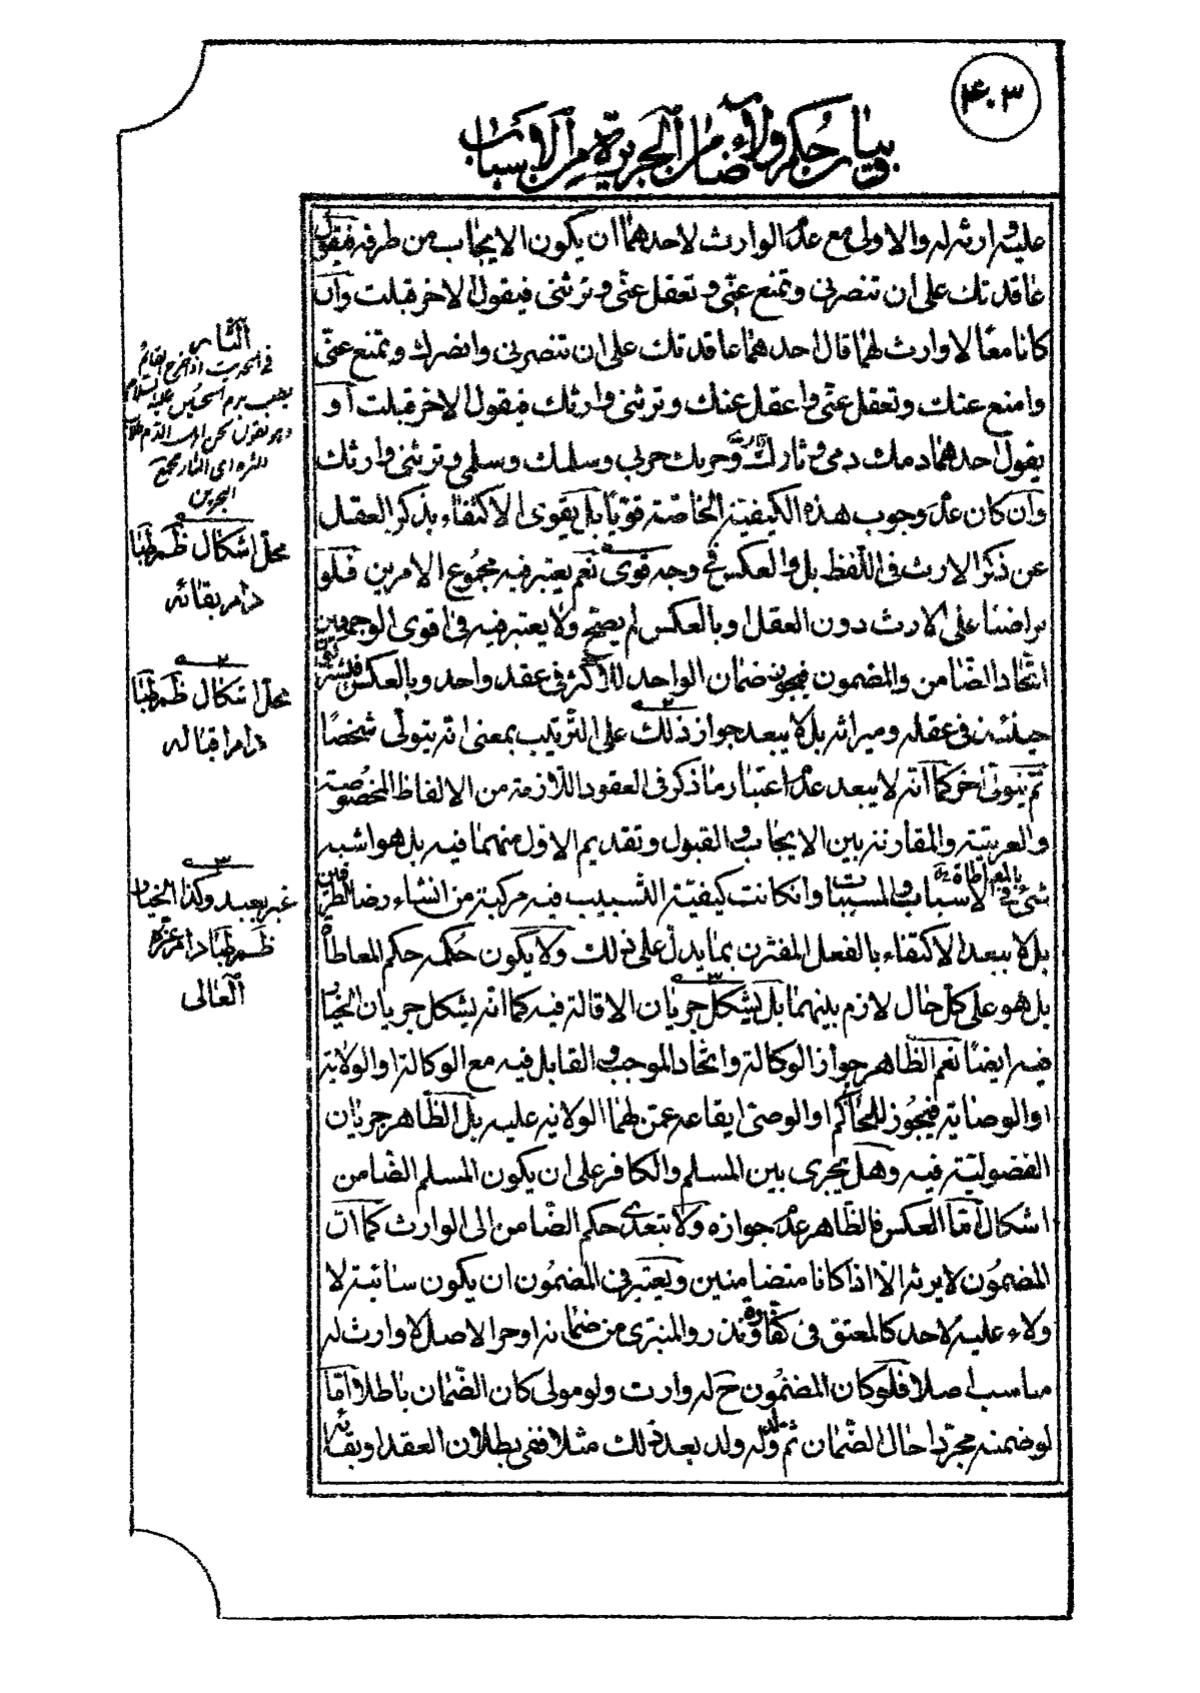 ۴۰۳
وبيان حكم ولاء ضامن الجريرة من الاسباب
عليه وارثه له والاولى مع عدم الوارث لاحدهما ان يكون الايجاب من طرفه فيقول
عاقدتك على ان تنصرنى وتمنع عنّى وتعقل عنّى وترثنى فيقول الاخر قبلت وان
كانا معًا لا وارث لهما قال احدهما عاقدتك على ان تنصرنى وانصرك وتمنع عنّى
وامنع عنك وتعقل عنّى واعقل عنك وترثنى وارثك فيقول الاخر قبلت أو
يقول احدهما دمك دمى وثارك ثارى وحربك حربى وسلمك وسلمى وترثنى وارثك
وان كان عدم وجوب هذه الكيفيّة الخاصّة قويًّا بل يقوى الاكتفاء بذكر العقل
عن ذكر الارث فى اللّفظ بل والعكس فى وجه قوى نعم يعتبر فيه مجموع الامرين فلو
تراضيا على الارث دون العقل او بالعكس لم يصحّ ولا يعتبر فيه فى اقوى الوجهين
اتّحاد الضّامن والمضمون فيجوز ضمان الواحد للاكثر فى عقد واحد وبالعكس فيشتركون
حينئذ فى عقله وميراثه بل لا يبعد جواز ذلك على التّرتيب بمعنى انّه يتولّى شخصًا
ثم يتولّى اخر كما انّه لا يبعد عدم اعتبار ما ذكر فى العقود اللّازمة من الالفاظ المخصوصة
والعربيّة والمقارنة بين الايجاب والقبول وتقديم الاوّل منهما فيه بل هو اشبه
شئ بالمعاطاة فى الاسباب والمسببات وان كانت كيفيّة التّسبيب فيه مركبة من انشاء رضا الطّرفين
بل لا يبعد الاكتفاء بالفعل المقترن بما يدلّ على ذلك ولا يكون حكمه حكم المعاطاة
بل هو على كلّ حال لازم بينهما بل يشكل جريان الاقالة فيه كما انّه يشكل جريان الخيار
فيه ايضًا نعم الظّاهر جواز الوكالة واتّحاد الموجب والقابل فيه مع الوكالة او الولاية
او الوصاية فيجوز للحاكم او الوصىّ ايقاعه عمّن لهما الولاية عليه بل الظّاهر جريان
الفضوليّة فيه وهل يجرى بين المسلم والكافر على ان يكون المسلم الضّامن
اشكال امّا العكس فالظّاهر عدم جوازه ولا يتعدى حكم الضّامن الى الوارث كما انّ
المضمون لا يرثه الّا اذا كانا متضامنين ويعتبر فى المضمون ان يكون سائبة لا
ولاء عليه لاحد كالمعتق فى كفّارة ونذر والمتبرّى من ضمانه او حر الاصل لا وارث له
مناسب اصلا فلو كان المضمون ح له وارث ولو مولى كان الضّمان باطلا امّا
لو ضمنه مجرّد احال الضّمان ثم ولد له ولد بعد ذلك مثلا ففى بطلان العقد او بقائه
الثّار
فى الحديث اذا خرج القائم
يطلب بدم الحسين عليه السّلام
وهو يقول نحن اهل الدّم طلاب
الثره اى الثار مجمع
البحرين
محلّ اشكال ظم طبا
دام بقائه
۲
محلّ اشكال ظم طبا
دام اقباله
۳
غير بعيد وكذا الخيار
ظم طبا دام عزّه
العالى